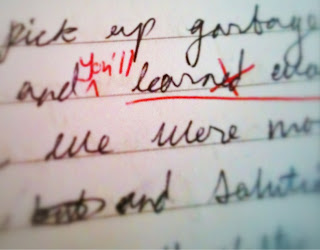 pick up garbage
and you'll learned
we were mo
and solutio